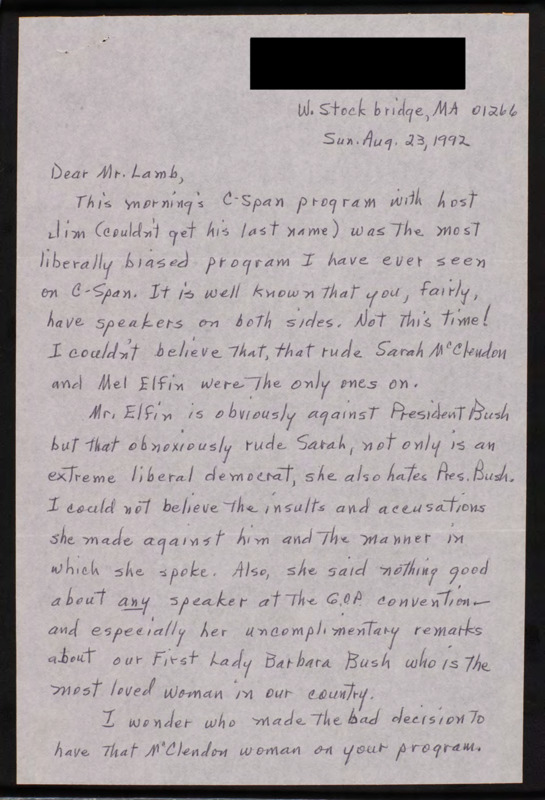 W. Stockbridge, MA 01266
Sun. Aug. 23, 1992
Dear Mr. Lamb,
This morning's C-Span program with host
Jim (couldn't get his last name) was the most
liberally biased program I have ever seen
on C-Span. It is well known that you, fairly,
have speakers on both sides. Not this time!
I couldn't believe that, that rude Sarah McClendon
and Mel Elfin were the only ones on.
Mr. Elfin is obviously against President Bush
but that obnoxiously rude Sarah, not only is an
extreme liberal democrat, she also hates Pres. Bush.
I could not believe the insults and accusations
she made against him and the manner in
which she spoke. Also, she said nothing good
about any speaker at the G.O.P. convention—
and especially her uncomplimentary remarks
about our First Lady Barbara Bush who is the
most loved woman in our country.
I wonder who made the bad decision to
have that McClendon woman on your program.